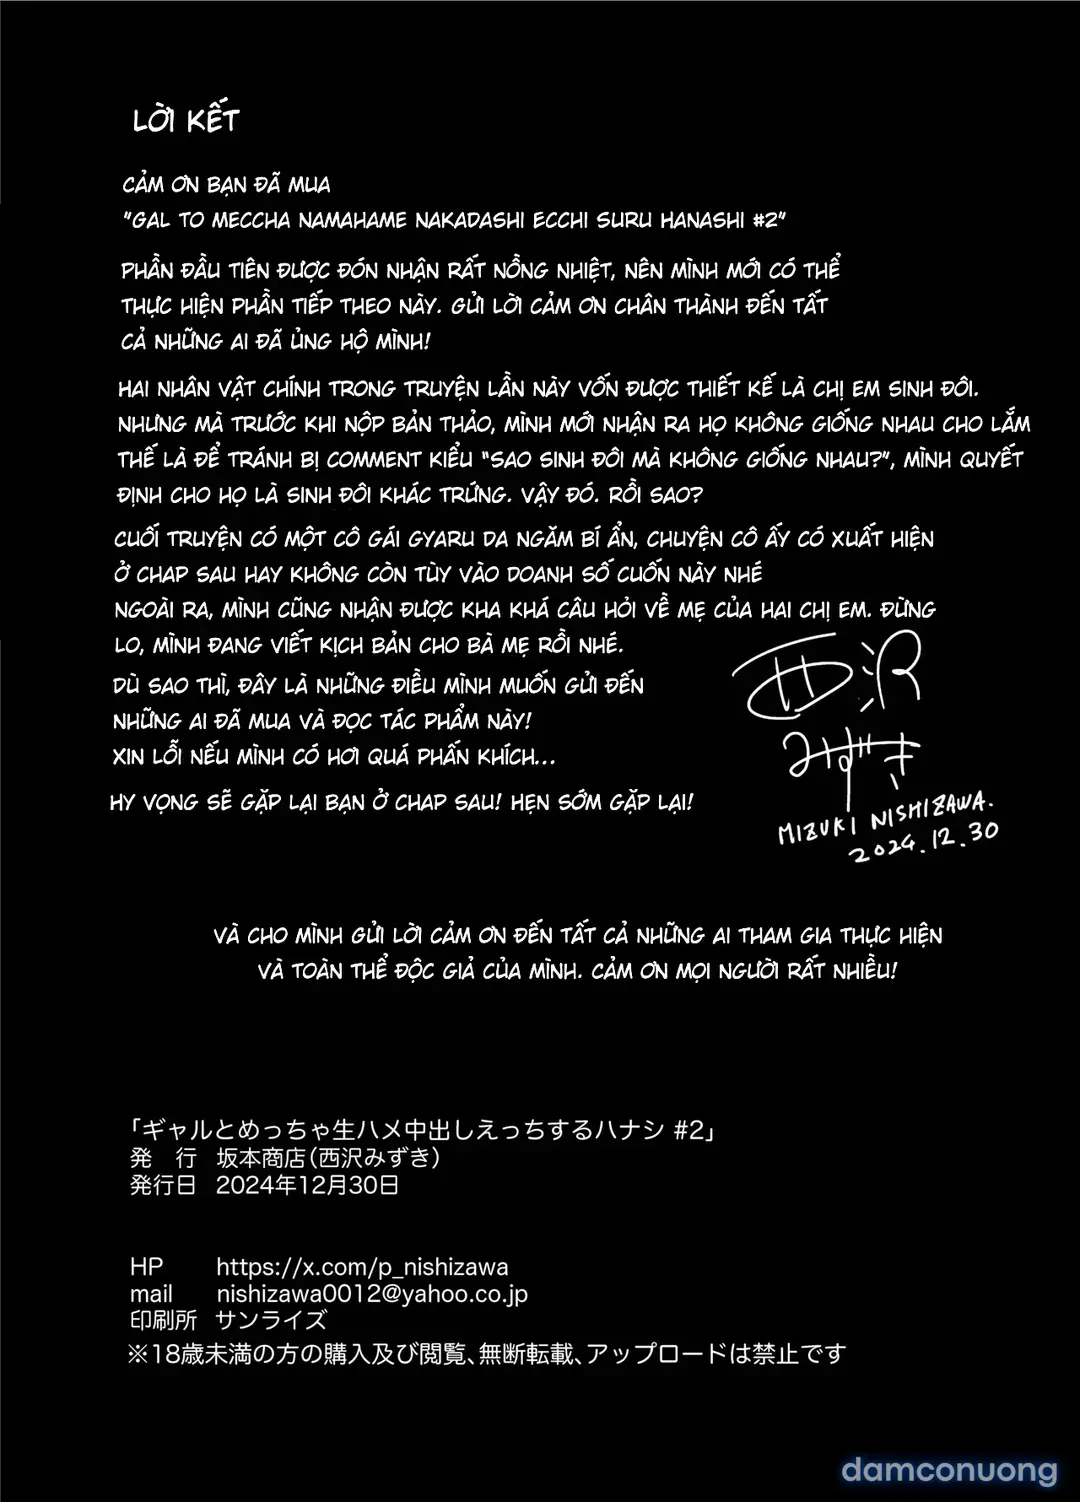 LỜI KẾT
CẢM ƠN BẠN ĐÃ MUA
"GAL TO MECCHA NAMAHAME NAKADASHI ECCHI SURU HANASHI #2"
PHẦN ĐẦU TIÊN ĐƯỢC ĐÓN NHẬN RẤT NỒNG NHIỆT, NÊN MÌNH MỚI CÓ THỂ
THỰC HIỆN PHẦN TIẾP THEO NÀY. GỬI LỜI CẢM ƠN CHÂN THÀNH ĐẾN TẤT
CẢ NHỮNG AI ĐÃ ỦNG HỘ MÌNH!
HAI NHÂN VẬT CHÍNH TRONG TRUYỆN LẦN NÀY VỐN ĐƯỢC THIẾT KẾ LÀ CHỊ EM SINH ĐÔI.
NHƯNG MÀ TRƯỚC KHI NỘP BẢN THẢO, MÌNH MỚI NHẬN RA HỌ KHÔNG GIỐNG NHAU CHO LẮM
THẾ LÀ ĐỂ TRÁNH BỊ COMMENT KIỂU "SAO SINH ĐÔI MÀ KHÔNG GIỐNG NHAU?", MÌNH QUYẾT
ĐỊNH CHO HỌ LÀ SINH ĐÔI KHÁC TRỨNG. VẬY ĐÓ. RỒI SAO?
CUỐI TRUYỆN CÓ MỘT CÔ GÁI GYARU DA NGĂM BÍ ẨN, CHUYỆN CÔ ẤY CÓ XUẤT HIỆN
Ở CHAP SAU HAY KHÔNG CÒN TÙY VÀO DOANH SỐ CUỐN NÀY NHÉ
NGOÀI RA, MÌNH CŨNG NHẬN ĐƯỢC KHA KHÁ CÂU HỎI VỀ MẸ CỦA HAI CHỊ EM. ĐỪNG
LO, MÌNH ĐANG VIẾT KỊCH BẢN CHO BÀ MẸ RỒI NHÉ.
DÙ SAO THÌ, ĐÂY LÀ NHỮNG ĐIỀU MÌNH MUỐN GỬI ĐẾN
NHỮNG AI ĐÃ MUA VÀ ĐỌC TÁC PHẨM NÀY!
XIN LỖI NẾU MÌNH CÓ HƠI QUÁ PHẤN KHÍCH...
HY VỌNG SẼ GẶP LẠI BẠN Ở CHAP SAU! HẸN SỚM GẶP LẠI!
西沢
みずき
MIZUKI NISHIZAWA.
2024.12.30
VÀ CHO MÌNH GỬI LỜI CẢM ƠN ĐẾN TẤT CẢ NHỮNG AI THAM GIA THỰC HIỆN
VÀ TOÀN THỂ ĐỘC GIẢ CỦA MÌNH. CẢM ƠN MỌI NGƯỜI RẤT NHIỀU!
「ギャルとめっちゃ生ハメ中出しえっちするハナシ #2」
発　行 坂本商店(西沢みずき)
発行日 2024年12月30日
HP https://x.com/p_nishizawa
mail nishizawa0012@yahoo.co.jp
印刷所 サンライズ
※18歳未満の方の購入及び閲覧、無断転載、アップロードは禁止です
damconuong